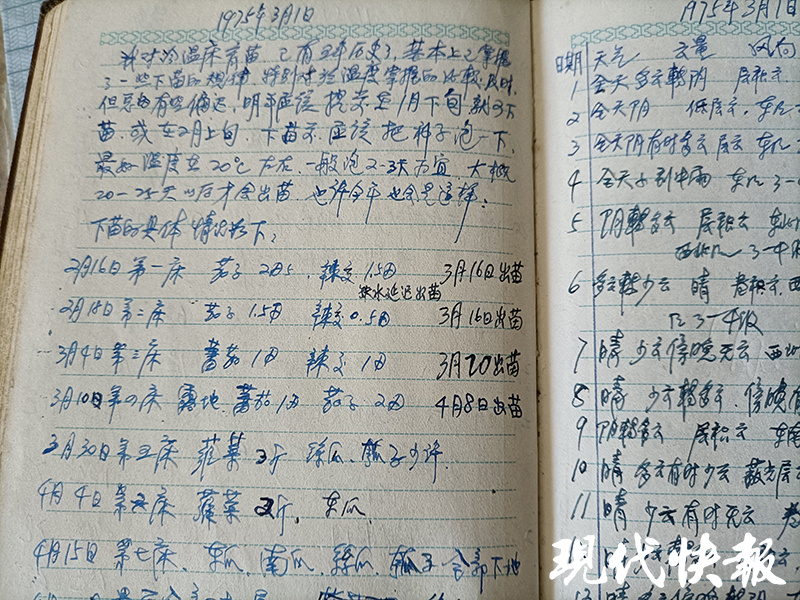 1975年3月1日
我对冷温床育苗,已有五年历史了,基本上已掌握
了一些下苗的规律,特别对于温度掌握的比较及时,
但总的有些偏迟,明年应该提前至1月下旬就下
苗,或在2月上旬,下苗前,应该把种子泡一下,
最好温度在20℃左右,一般泡2-3天为宜,大概
20-25天以后才会出苗,也许今年也会是这样:
下苗的具体情况如下:
2月16日第一床 茄子2 辣交1.5 3月16日出苗
缺水延迟出苗
2月18日第二床 茄子1.5 辣交0.5 3月16出苗
3月4日第三床 蕃茄1 辣交1 3月20出苗
3月10日第四床 露地 蕃茄1 茄子2 4月8日出苗
3月30日第五床 蕹菜2斤 丝瓜、瓠子少许.
4月4日第六床 蕹菜2斤, 东瓜,
4月15日第七床, 东瓜,南瓜,丝瓜,瓠子全部下地
1975年3月1日
日期 天气 云量 风向
1 全天多云转阴 层积云
2 全天阴 低层云,东
3 全天阴有时多云 层云 东
4 全天小到中雨 东
5 阴转多云 层积云
西北 3-4级
6 多云转少云 晴 卷积云,西
3-4级
7 晴 少云傍晚无云 西北
8 晴 少云转多云,傍晚
9 阴转多云 层积云 东南
10 晴 多云有时少云
11 晴 少云有时无云 卷
现代快报